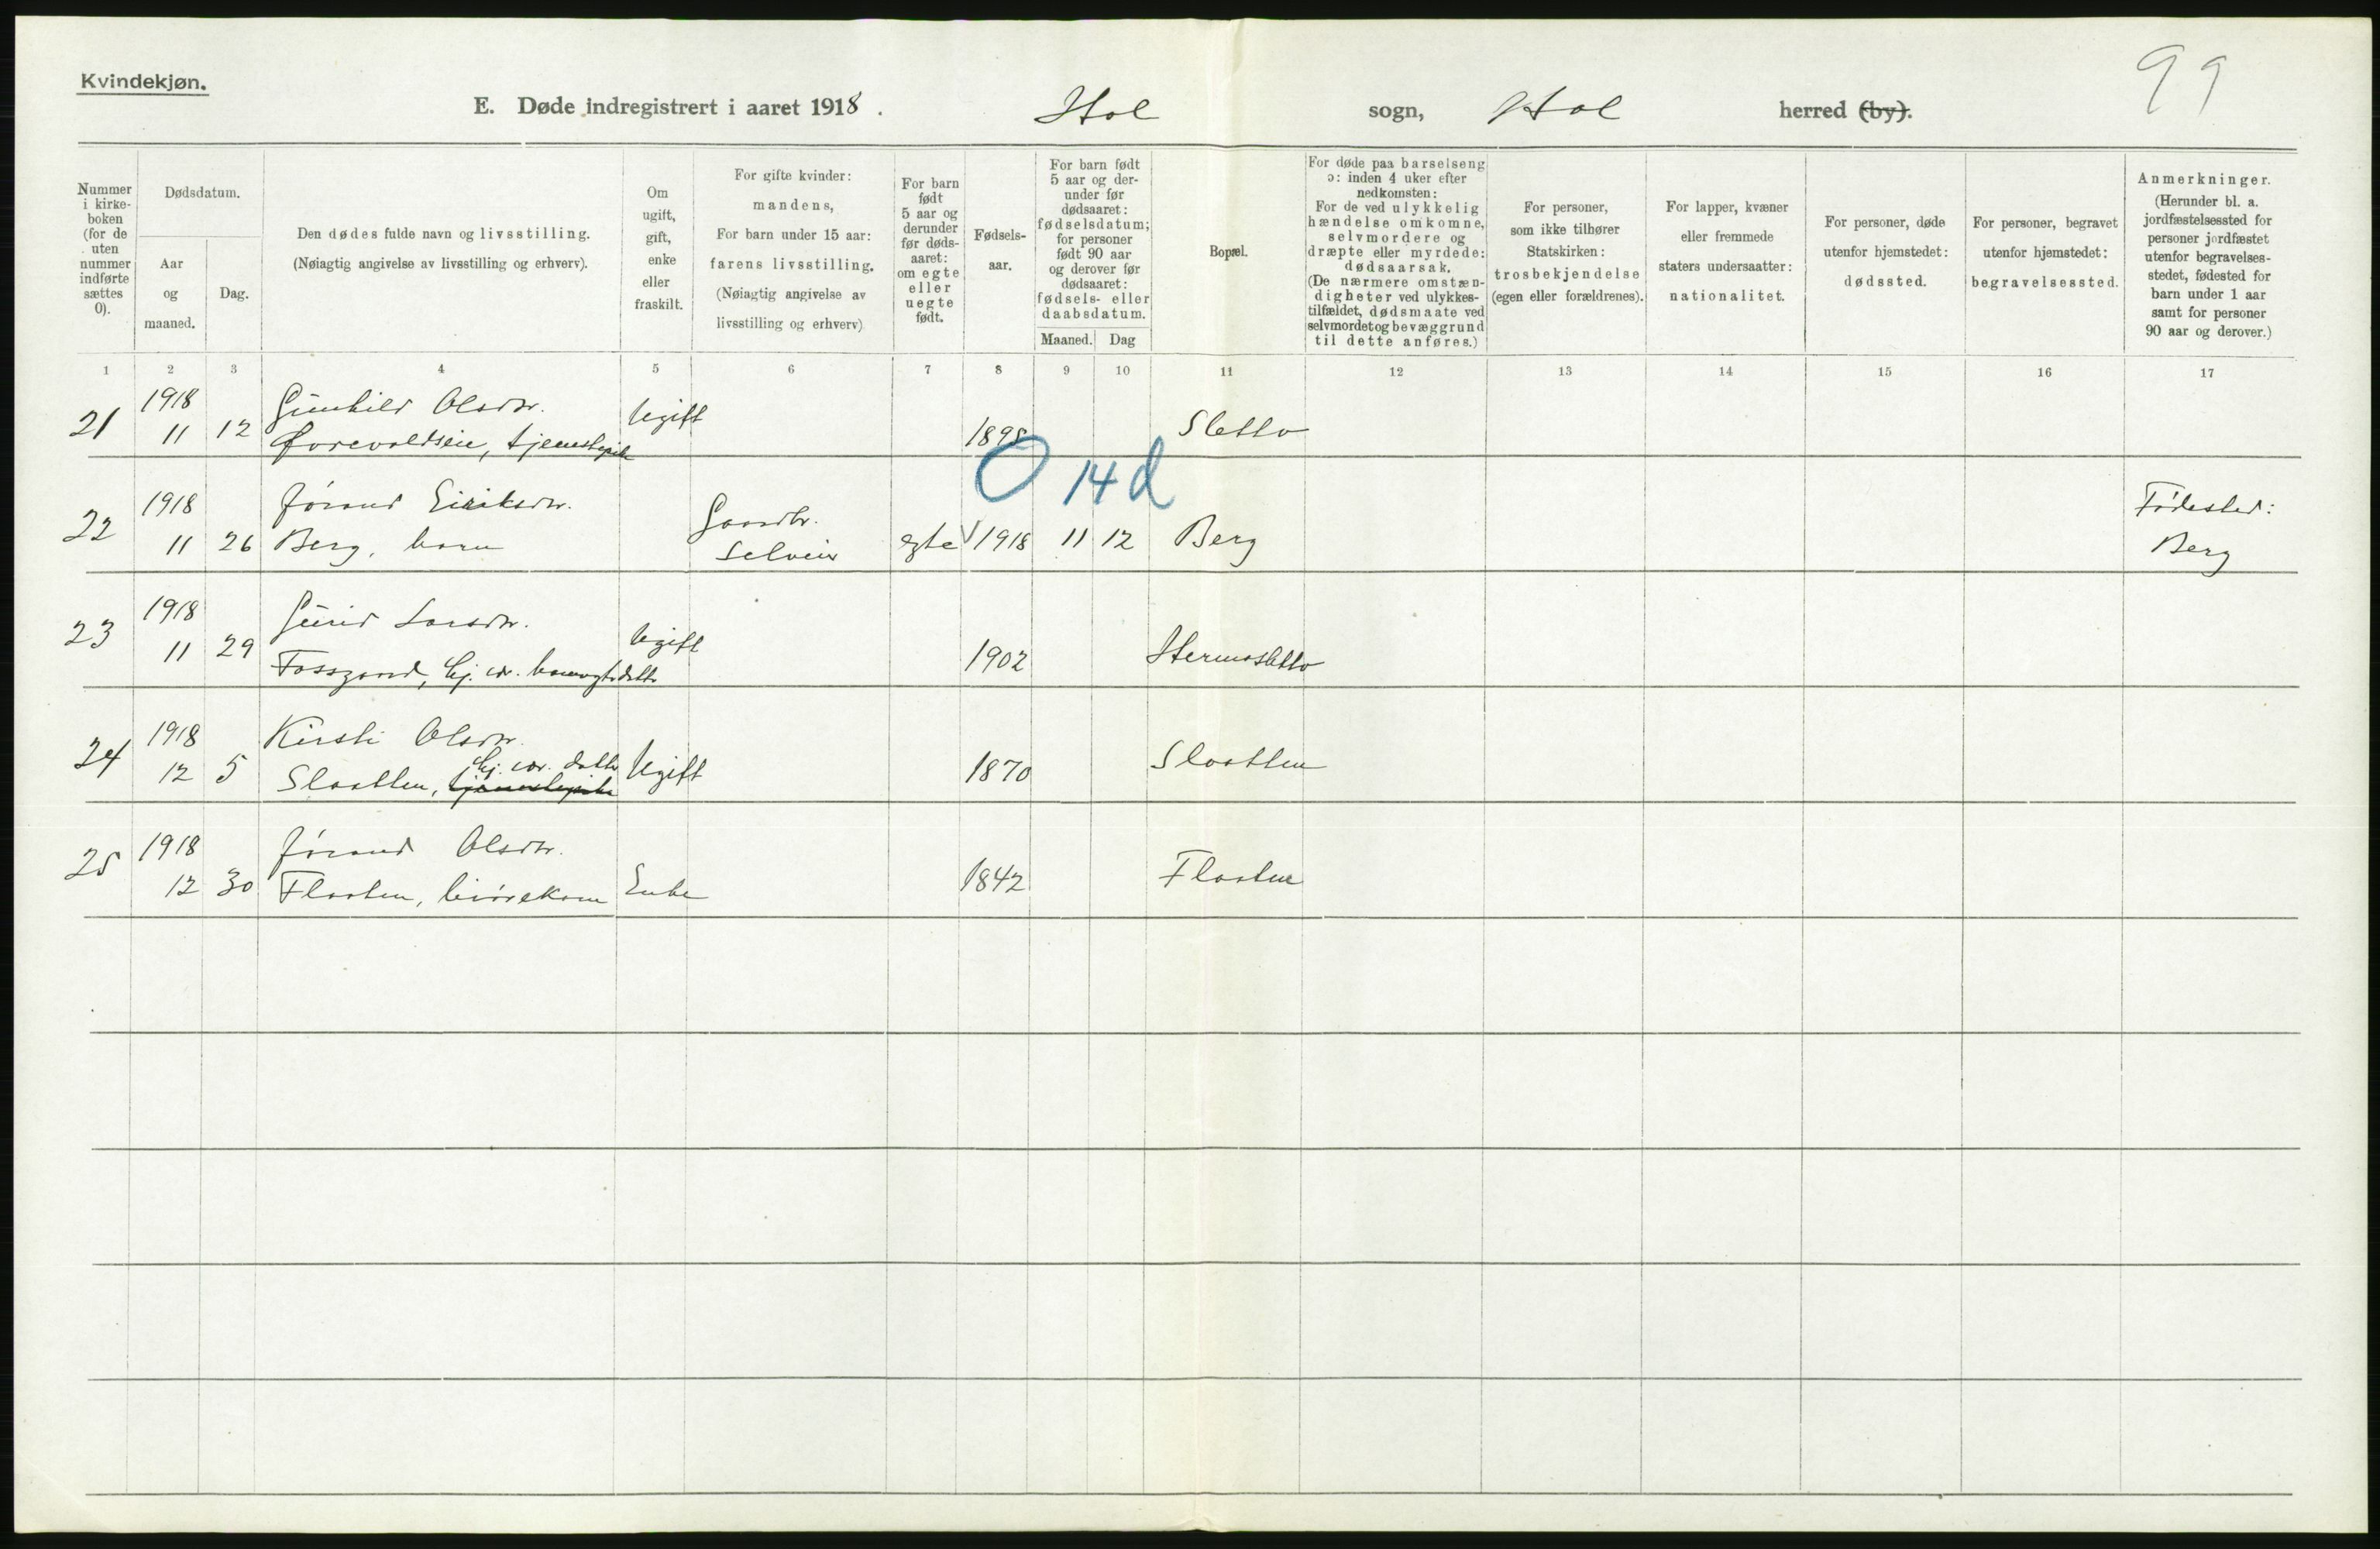 Kvindekjøn.
99
E. Døde indregistrert i aaret 1918. Hol sogn, Hol herred (by).
Nummer i kirke-boken (for de uten nummer indførte sættes 0).
Dødsdatum.
Aar og maaned.
Dag.
Den dødes fulde navn og livsstilling.
(Nøiagtig angivelse av livsstilling og erhverv).
Om ugift, gift, enke eller fraskilt.
For gifte kvinder: mandens,
For barn under 15 aar: farens livsstilling.
(Nøiagtig angivelse av livsstilling og erhverv)
For barn født 5 aar og derunder før døds-aaret: om egte eller uegte født.
Fødsels-aar.
For barn født 5 aar og der-under før dødsaaret: fødselsdatum; for personer født 90 aar og derover før dødsaaret: fødsels- eller daabsdatum.
Maaned. Dag
Bopæl.
For døde paa barselseng ɔ: inden 4 uker efter nedkomsten:
For de ved ulykkelig hændelse omkomne, selvmordere og dræpte eller myrdede: dødsaarsak.
(De nærmere omstæn-digheter ved ulykkes-tilfældet, dødsmaate ved selvmordet og bevæggrund til dette anføres.)
For personer, som ikke tilhører Statskirken: trosbekjendelse (egen eller forældrenes).
For lapper, kvæner eller fremmede staters undersaatter: nationalitet.
For personer, døde utenfor hjemstedet: dødssted.
For personer, begravet utenfor hjemstedet: begravelsessted.
Anmerkninger.
(Herunder bl. a. jordfæstelsessted for personer jordfæstet utenfor begravelses-stedet, fødested for barn under 1 aar samt for personer 90 aar og derover.)
1 2 3 4 5 6 7 8 9 10 11 12 13 14 15 16 17
21 1918 Gunhild Olsdtr. Ugift
11 12 tjenestepike 1898 Sletto
O 14 d
22 1918 Jórand Eiriksdtr. Gaardbr. Fødested:
11 26 Berg, barn Selveier egte V 1918 11 12 Berg Berg
23 1918 Guri Larsdtr. Ugift
11 29 Fossgard, hj. v. 1902 Hermosletto
24 1918 Kirsti Olsdtr. hj. v. datter Ugift
12 5 Slaatten, tjenestepike 1870 Slaatten
25 1918 Jórand Olsdtr.
12 30 Flaaten, livørekone Enke 1842 Flaaten